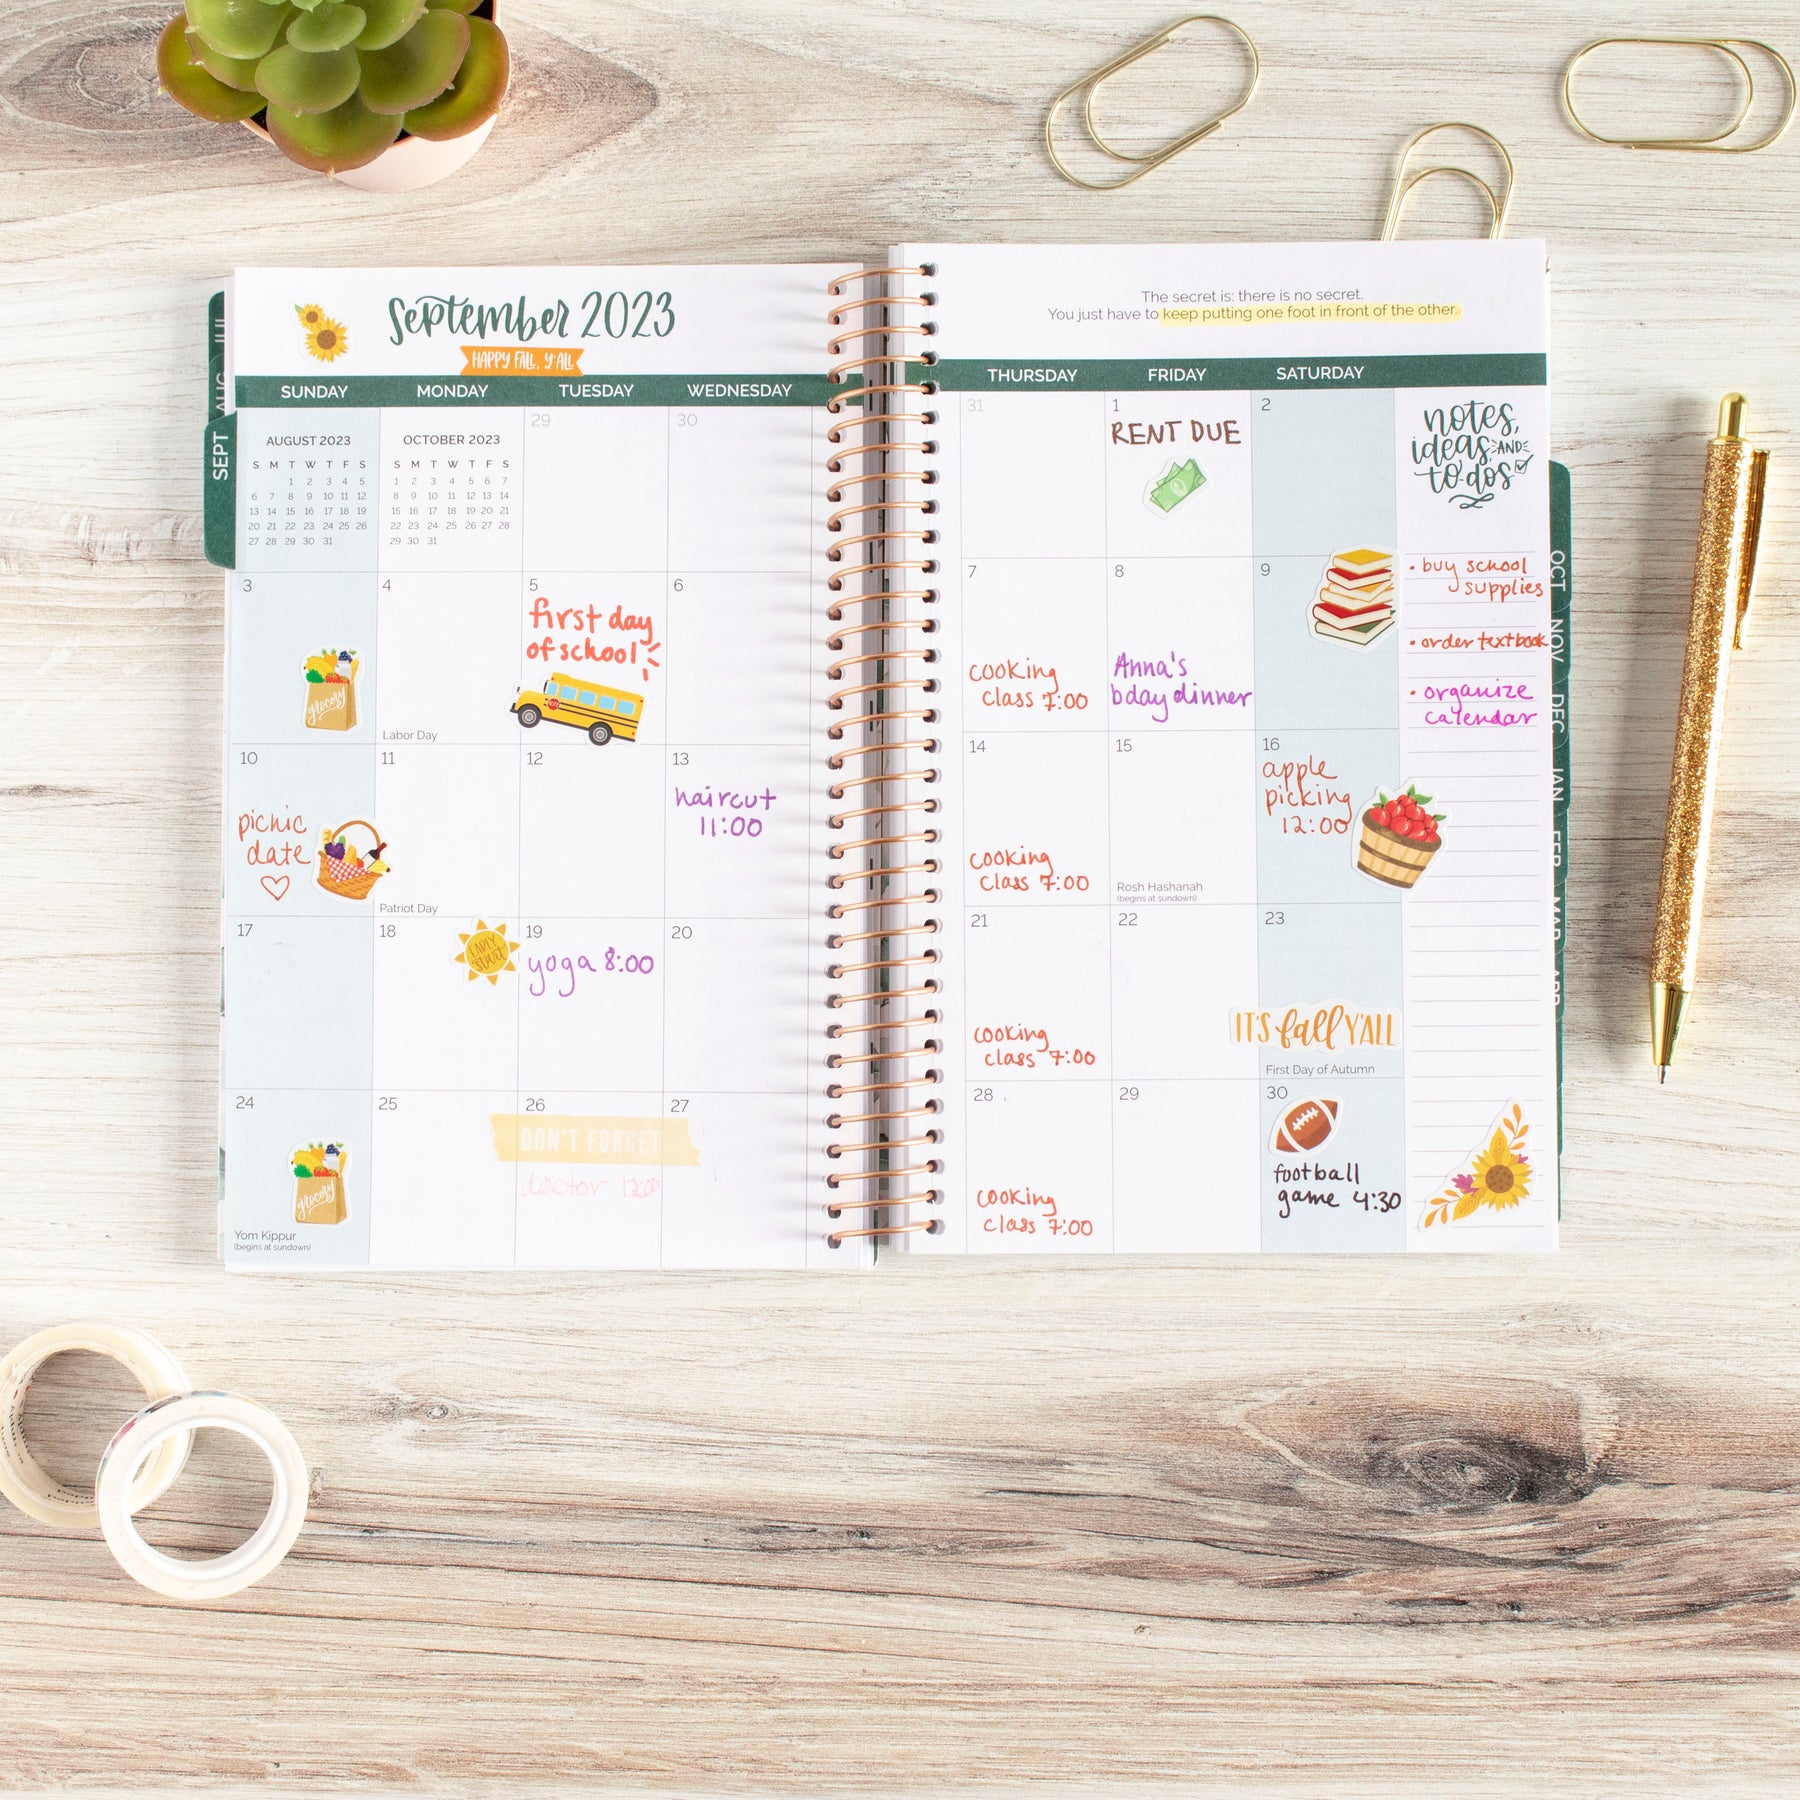 September 2023
HAPPY FALL, Y'ALL
SUNDAY MONDAY TUESDAY WEDNESDAY
AUGUST 2023
S M T W T F S
1 2 3 4 5
6 7 8 9 10 11 12
13 14 15 16 17 18 19
20 21 22 23 24 25 26
27 28 29 30 31
OCTOBER 2023
S M T W T F S
1 2 3 4 5 6 7
8 9 10 11 12 13 14
15 16 17 18 19 20 21
22 23 24 25 26 27 28
29 30 31
29
30
3
grocery
4
Labor Day
5
first day
of school
6
10
picnic
date
11
Patriot Day
12
13
haircut
11:00
17
18
EARLY
start
19
yoga 8:00
20
24
grocery
Yom Kippur
(begins at sundown)
25
26
DON'T FORGET
doctor 12:00
27
JUL
AUG
SEPT
The secret is: there is no secret.
You just have to keep putting one foot in front of the other.
THURSDAY FRIDAY SATURDAY
31
1
RENT DUE
2
7
cooking
class 7:00
8
Anna's
bday dinner
9
14
cooking
class 7:00
15
Rosh Hashanah
(begins at sundown)
16
apple
picking
12:00
21
cooking
class 7:00
22
23
IT'S fall Y'ALL
First Day of Autumn
28
cooking
class 7:00
29
30
football
game 4:30
notes,
ideas, AND
to-dos
• buy school
supplies
• order textbook
• organize
calendar
OCT
NOV
DEC
JAN
FEB
MAR
APR